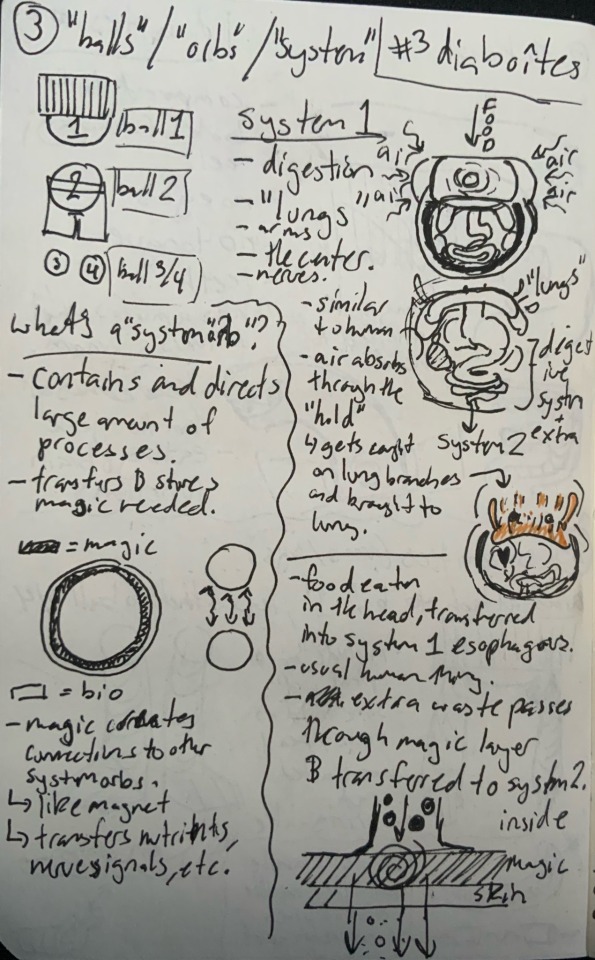 ③ "balls" / "orbs" / "system" #3 diaboîtes
1 ball 1
2 ball 2
③ ④ ball 3/4
what's a "system orb"?
- contains and directs
large amount of
processes.
- transfers & stores
magic needed.
= magic
= bio
- magic creates
connections to other
systmorbs.
↳ like magnet
↳ transfers nutrients,
nerve signals, etc.
system 1
- digestion
- "lungs"
- arms
- the center.
- nerves.
FOOD
air
air
air
air
"lungs"
- similar
to human
- air absorbs
through the
"hold"
↳ gets caught
on lung branches
and brought to
lung.
digest
ive
systm
+
extra
system 2
- food eaten
in the head, transferred
into system 1 esophagous.
- usual human thing.
- extra waste passes
through magic layer
& transferred to systm 2.
inside
magic
skin